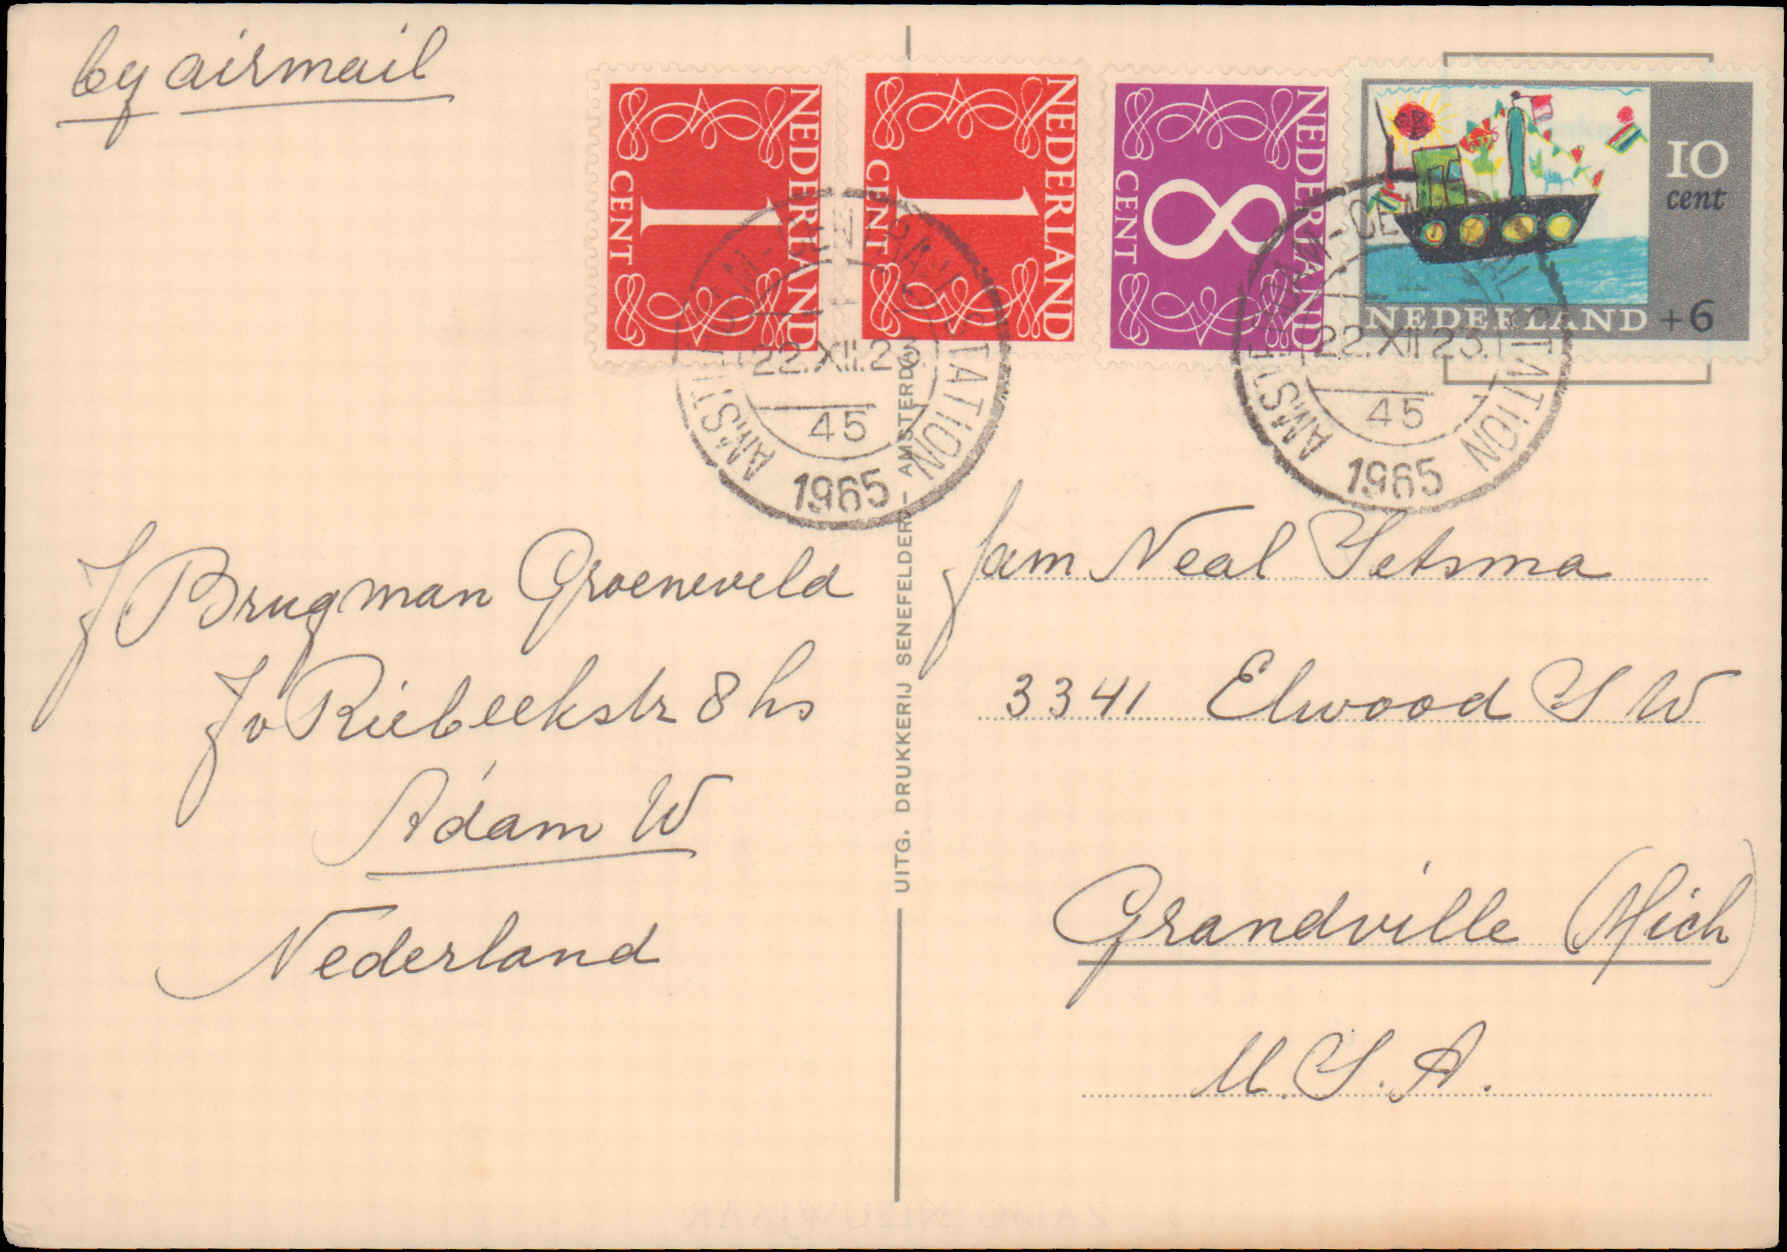 by airmail
NEDERLAND
1
CENT
NEDERLAND
1
CENT
NEDERLAND
8
CENT
10
cent
NEDERLAND +6
AMSTERDAM-CENTRAAL STATION
22.XII.23.
45
1965
AMSTERDAM-CENTRAAL STATION
22.XII.23.
45
1965
J Brugman Groeneveld
J v Riebeekstr 8 hs
A'dam W
Nederland
UITG. DRUKKERIJ SENEFELDER - AMSTERDAM
fam Neal Setsma
3341 Elwood S W
Grandville (Mich)
U.S.A.